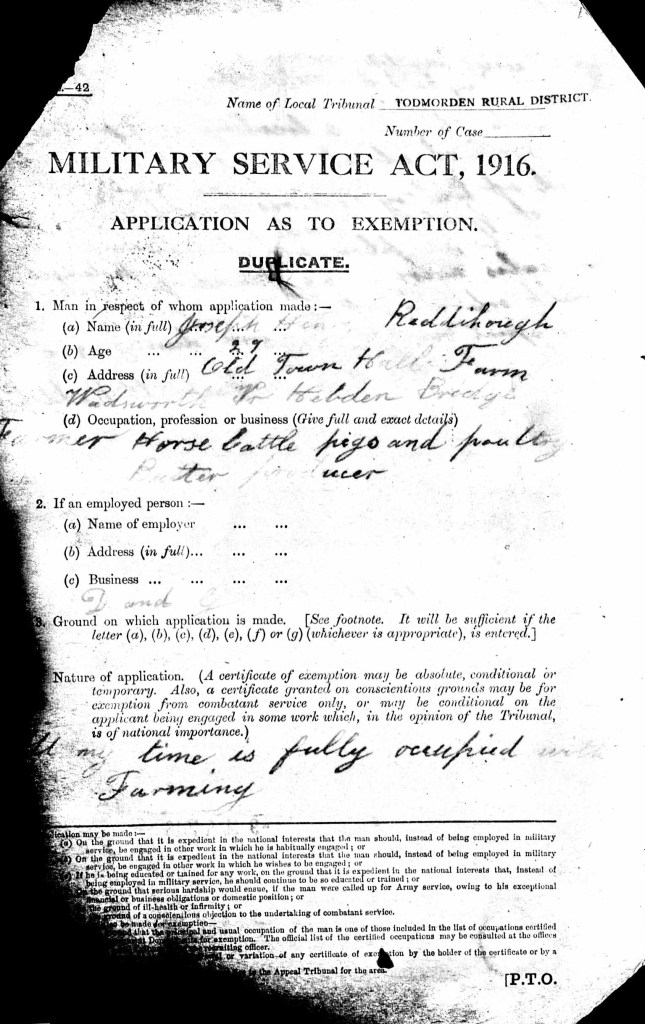 —42
Name of Local Tribunal TODMORDEN RURAL DISTRICT.
Number of Case
MILITARY SERVICE ACT, 1916.
APPLICATION AS TO EXEMPTION.
DUPLICATE.
1. Man in respect of whom application made :—
(a) Name (in full) Joseph Reddihough
(b) Age ... ... 29 ...
(c) Address (in full) Old Town Hall Farm
Wadsworth Nr Hebden Bridge
(d) Occupation, profession or business (Give full and exact details)
Farmer Horse Cattle pigs and poultry
Butter producer
2. If an employed person :—
(a) Name of employer ... ...
(b) Address (in full)... ... ...
(c) Business ... ... ... ...
D and
3. Ground on which application is made. [See footnote. It will be sufficient if the
letter (a), (b), (c), (d), (e), (f) or (g) (whichever is appropriate), is entered.]
Nature of application. (A certificate of exemption may be absolute, conditional or
temporary. Also, a certificate granted on conscientious grounds may be for
exemption from combatant service only, or may be conditional on the
applicant being engaged in some work which, in the opinion of the Tribunal,
is of national importance.)
my time is fully occupied with
Farming
ication may be made :—
(a) On the ground that it is expedient in the national interests that the man should, instead of being employed in military
service, be engaged in other work in which he is habitually engaged ; or
On the ground that it is expedient in the national interests that the man should, instead of being employed in military
service, be engaged in other work in which he wishes to be engaged ; or
If he is being educated or trained for any work, on the ground that it is expedient in the national interests that, instead of
being employed in military service, he should continue to be so educated or trained ; or
On the ground that serious hardship would ensue, if the man were called up for Army service, owing to his exceptional
financial or business obligations or domestic position ; or
the ground of ill-health or infirmity ; or
ground of a conscientious objection to the undertaking of combatant service.
be made for exemption—
that the principal and usual occupation of the man is one of those included in the list of occupations certified
for exemption. The official list of the certified occupations may be consulted at the offices
recruiting officer.
or variation of any certificate of exemption by the holder of the certificate or by a
the Appeal Tribunal for the area.
[P.T.O.